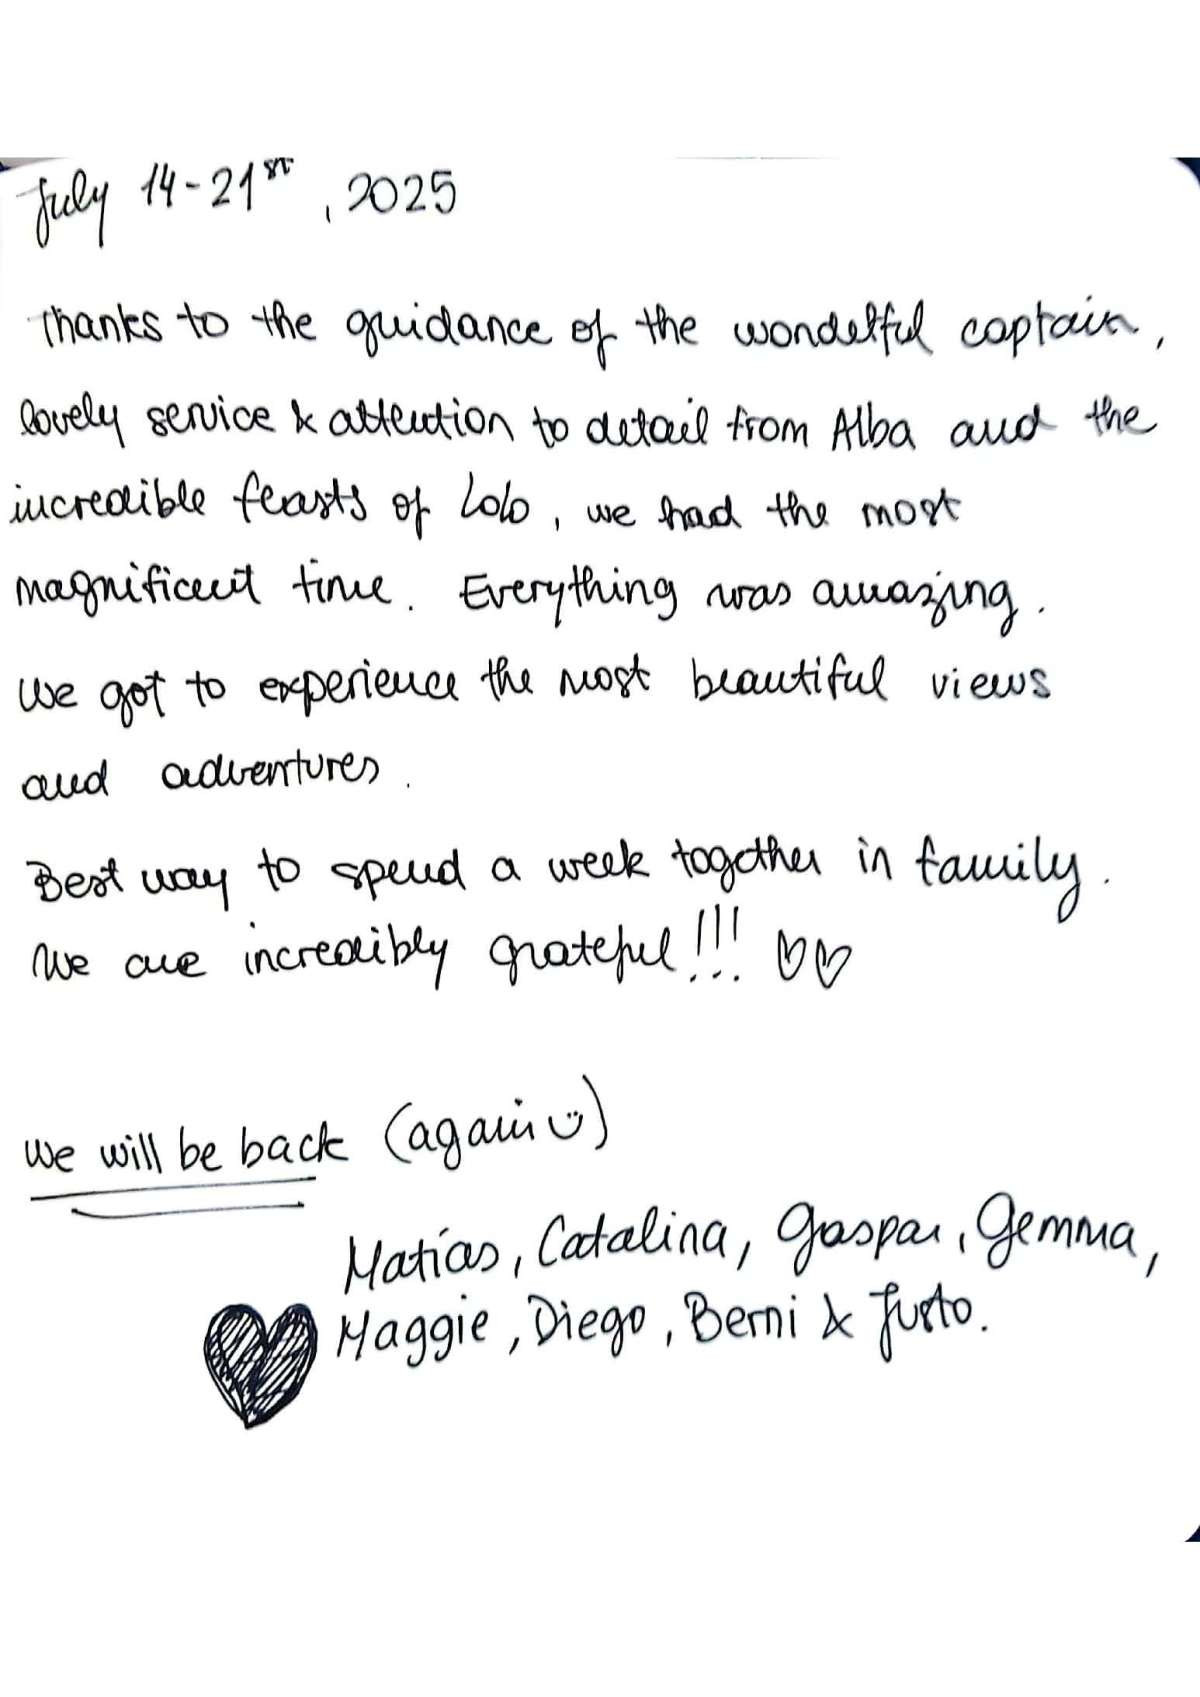 July 14-21st, 2025
Thanks to the guidance of the wonderful captain,
lovely service & attention to detail from Alba and the
incredible feasts of Lolo, we had the most
magnificent time. Everything was amazing.
We got to experience the most beautiful views
and adventures.
Best way to spend a week together in family.
We are incredibly grateful!!! ♡♡
We will be back (again ☺)
Matías, Catalina, Gaspar, Gemma,
Maggie, Diego, Berni & Justo.